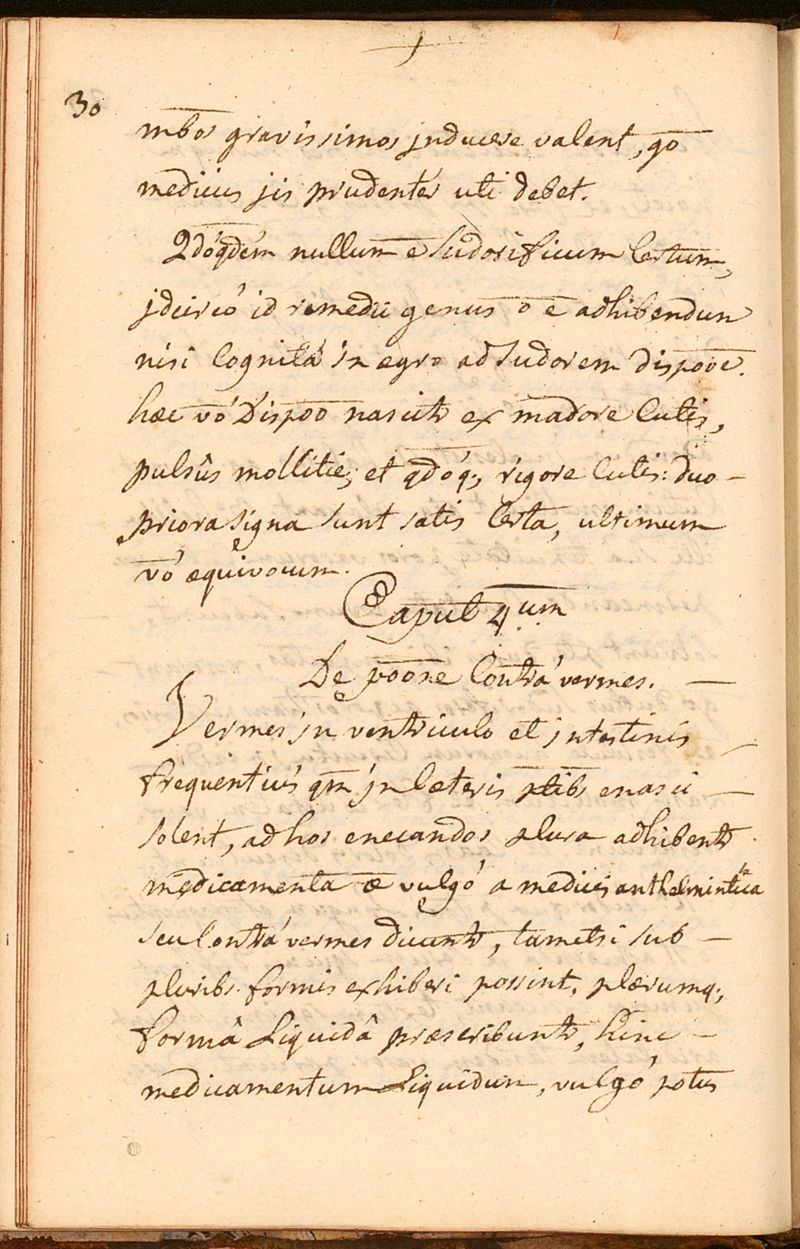 30
mbos gravissimos jnducere valent, go
medicus jis prudenter uti debet.
Qdóqdem nullum e sudorificum Certum,
jdcircó id remedii genus o e adhibendun
nisi Cognitá in ægro ad sudorem dispoōe.
hæc vó Dispoō nascitr ex madore Cutis,
pulsûs mollitie, et qdóq; rigore Cutis: duo
priora signa sunt satis Certa, ultimum
vó æquivocum.
Caput 4um
De poōne Contrá vermes.
Vermes jn ventriculo et jntestinis
frequentiús qm jn Cæteris ptibs enasci
solent, ad hos enecandos plura adhibentr
medicamenta æ vulgó a medicis anthelmintica
seu Contrá vermes dicuntr, tametsi sub
pluribs formis exhiberi possint, plærumq;
formâ Liquidâ præscribuntr, hinc
medicamentum Liquidun, vulgó potus